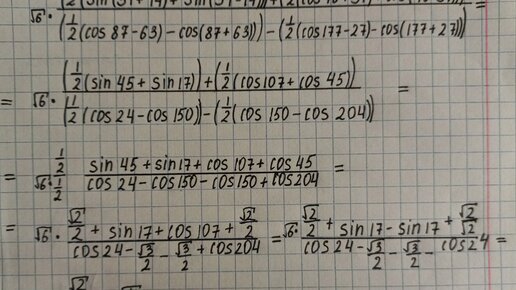 √6 · (½(sin(31+14)+sin(31-14)))+(½(cos
(½(cos 87-63) - cos(87+63))) - (½(cos177-27) - cos(177+27)) =
= √6 · (½(sin 45 + sin17)) + (½(cos107 + cos 45)) / (½(cos 24 - cos150)) - (½(cos 150 - cos 204)) =
= √6 · ½ / ½ · sin 45 + sin17 + cos 107 + cos 45 / cos 24 - cos150 - cos150 + cos204 =
= √6 · √2/2 + sin 17 + cos 107 + √2/2 / cos24 - √3/2 - √3/2 + cos204 = √6 · √2/2 + sin17 - sin17 + √2/√2 / cos24 - √3/2 - √3/2 - cos24 =
√2